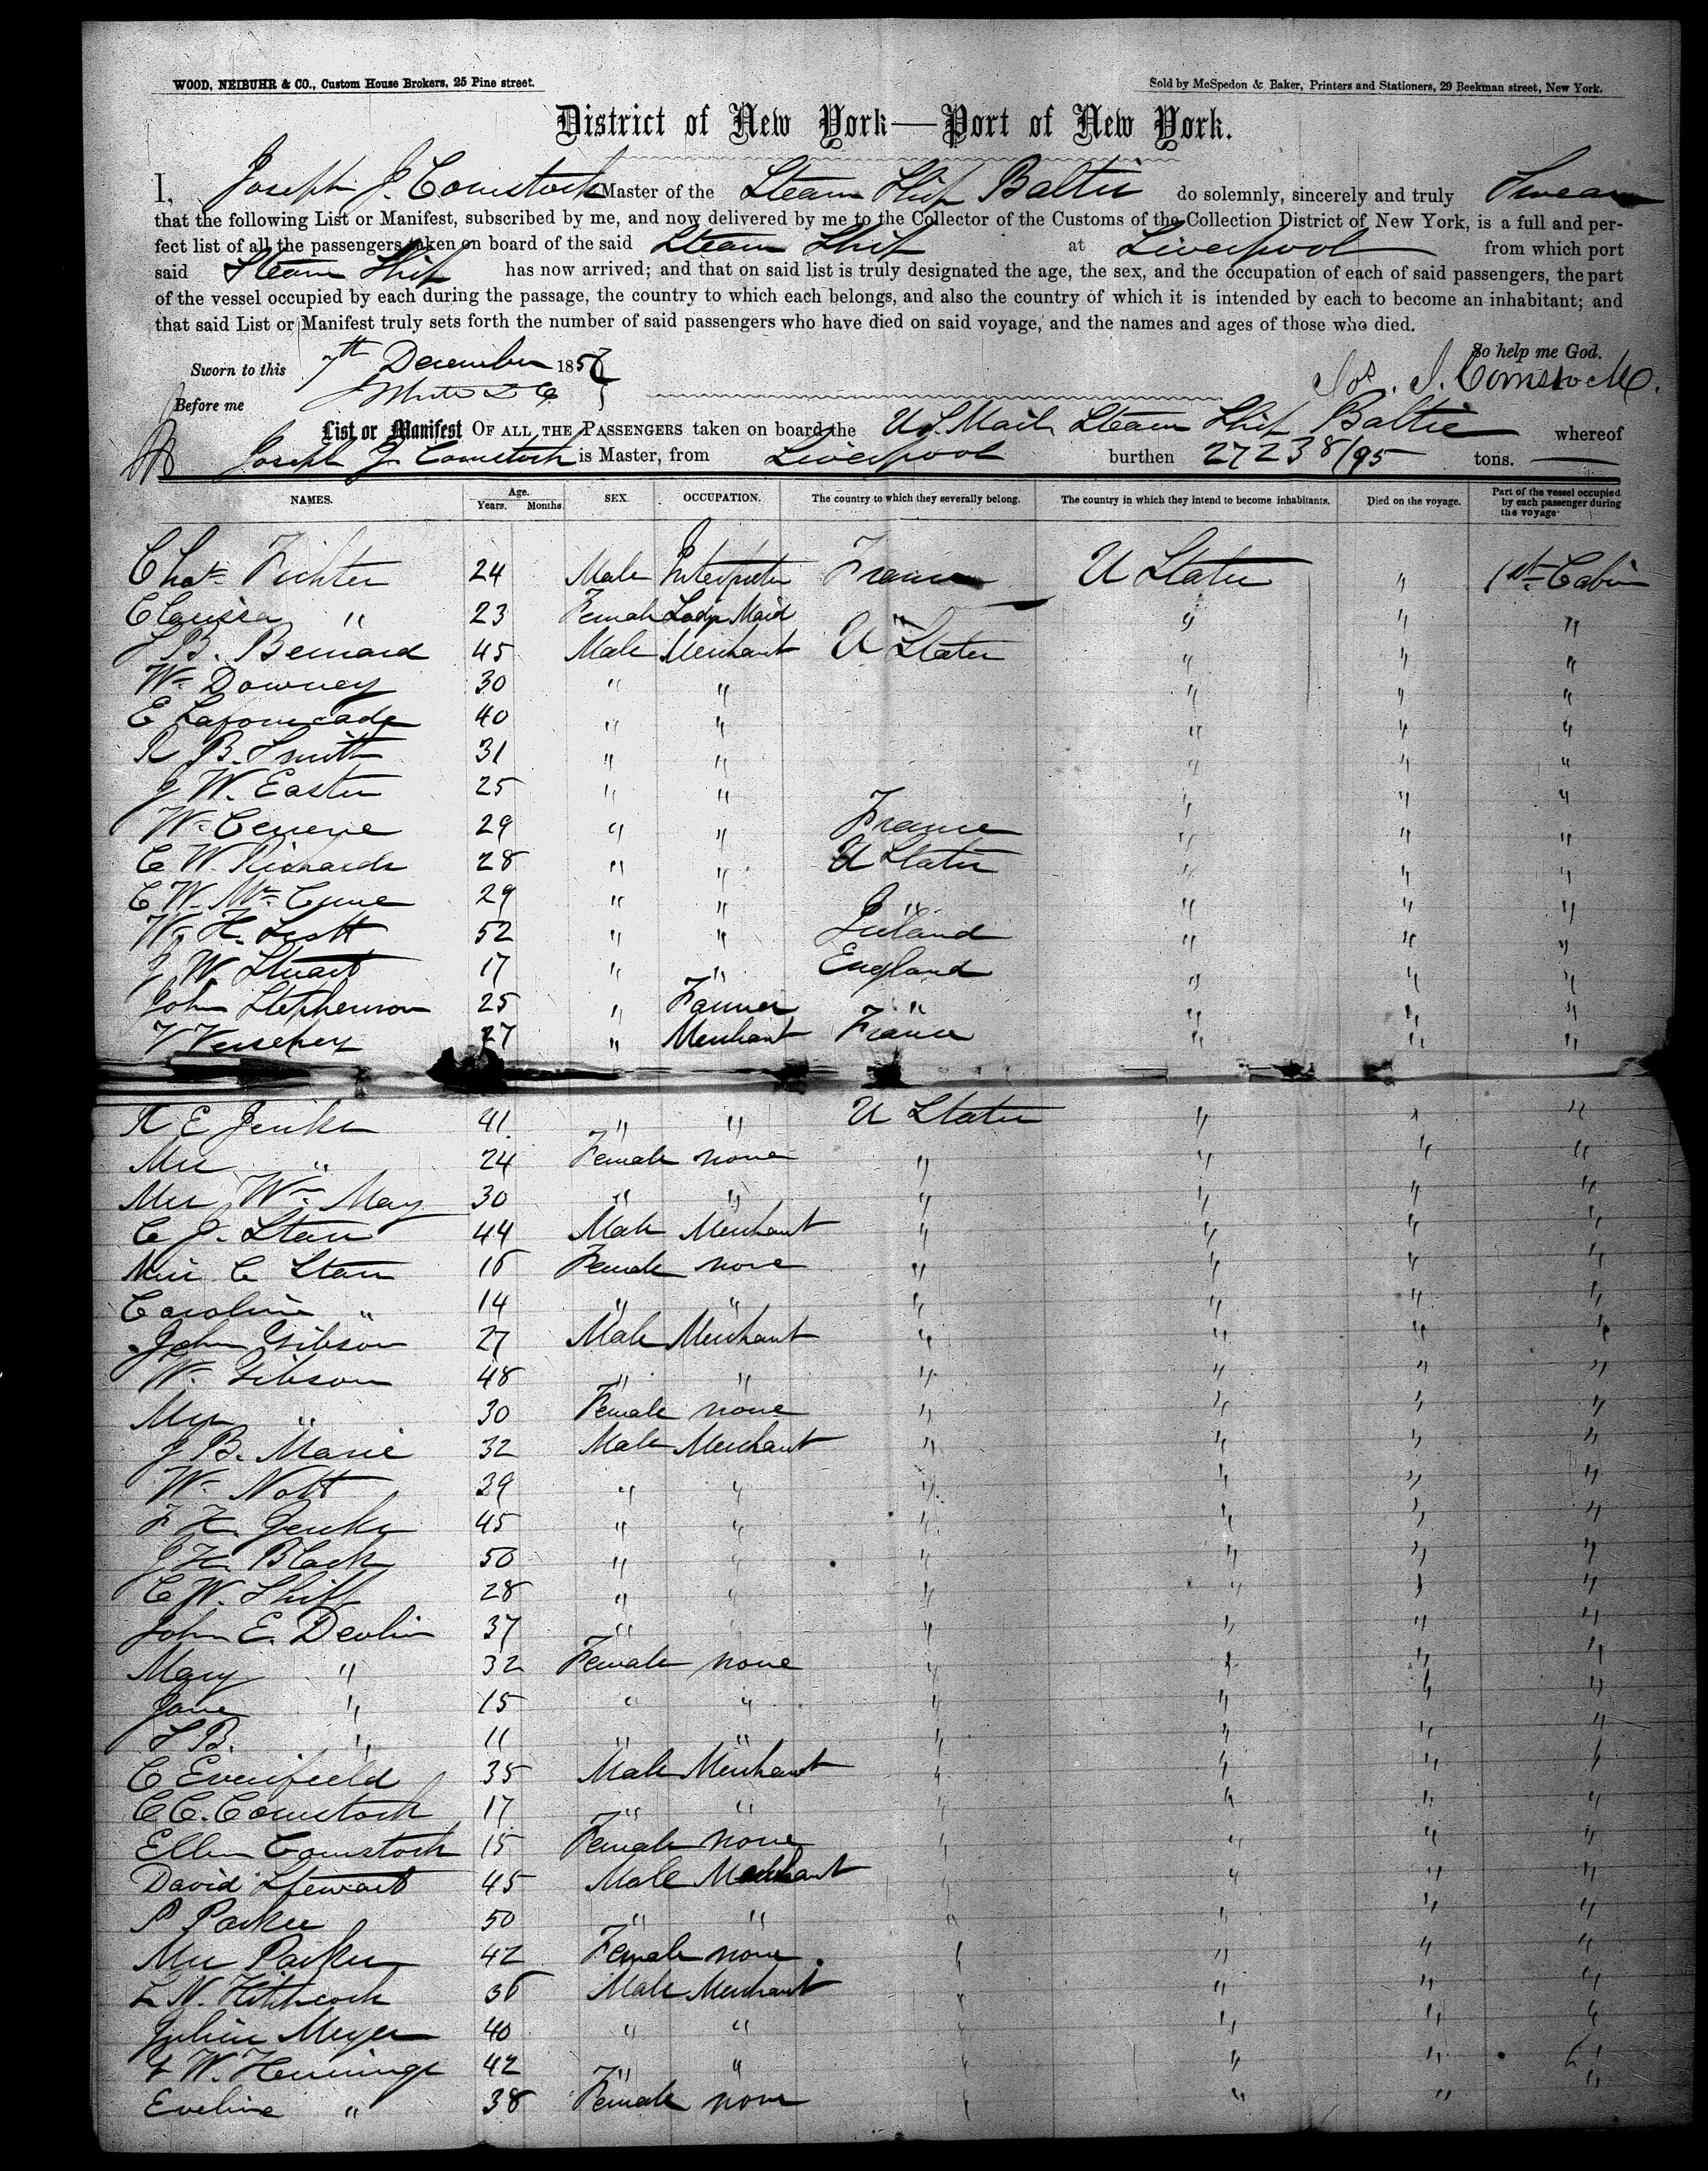 WOOD, NEIBUHR & CO., Custom House Brokers, 25 Pine street. Sold by McSpedon & Baker, Printers and Stationers, 29 Beekman street, New York.
District of New York—Port of New York.
I, Joseph J. Comstock Master of the Steam Ship Baltic do solemnly, sincerely and truly Swear
that the following List or Manifest, subscribed by me, and now delivered by me to the Collector of the Customs of the Collection District of New York, is a full and per-
fect list of all the passengers taken on board of the said Steam Ship at Liverpool from which port
said Steam Ship has now arrived; and that on said list is truly designated the age, the sex, and the occupation of each of said passengers, the part
of the vessel occupied by each during the passage, the country to which each belongs, and also the country of which it is intended by each to become an inhabitant; and
that said List or Manifest truly sets forth the number of said passengers who have died on said voyage, and the names and ages of those who died.
So help me God.
Sworn to this 7th December 185
Jos. J. Comstock.
Before me
List or Manifest OF ALL THE PASSENGERS taken on board the U.S. Mail Steam Ship Baltic whereof
Joseph J. Comstock is Master, from Liverpool burthen 2723 8/95 tons.
NAMES. Age. Years. Months. SEX. OCCUPATION. The country to which they severally belong. The country in which they intend to become inhabitants. Died on the voyage. Part of the vessel occupied by each passenger during the voyage
Chas Fichter 24 Male Interpreter France U States " 1st Cabin
Clarissa " 23 Female Lady Maid " " " "
B. Bernard 45 Male Merchant U States " " "
Wm Downey 30 " " " " "
E Lafourcade 40 " " " " "
R B. Smith 31 " " " " "
J W. Easter 25 " " " " "
Wm 29 " " France " " "
C W. Richards 28 " " U States " " "
C W. Mc Cune 29 " " " " " "
W. H. Scott 52 " " Ireland " " "
J W. Stuart 17 " " England " " "
John Stephenson 25 " Farmer " " " "
V 27 " Merchant France " " "
R E Jenks 41 " " U States " " "
Mrs " 24 Female none " " " "
Mrs Wm May 30 " " " " " "
C J. Starr 44 Male Merchant " " " "
Miss C Starr 16 Female none " " " "
Caroline " 14 " " " " " "
John Gibson 27 Male Merchant " " " "
W. Gibson 48 " " " " " "
Mrs " 30 Female none " " " "
J B. Marie 32 Male Merchant " " " "
Wm Nott 29 " " " " " "
F H. Jenks 45 " " " " " "
J H. Black 50 " " " " " "
C W. 28 " " " " " "
John E. Devlin 37 " " " " " "
Mary " 32 Female none " " " "
Jane " 15 " " " " " "
B. " 11 " " " " " "
C Everifield 35 Male Merchant " " " "
C C. Comstock 17 " " " " " "
Ellen Comstock 15 Female none " " " "
David Stewart 45 Male Merchant " " " "
P Parker 50 " " " " " "
Mrs Parker 42 Female none " " " "
L N. Hitchcock 36 Male Merchant " " " "
Julien Meyer 40 " " " " " "
W. Hennings 42 " " " " " "
Eveline " 38 Female none " " " "